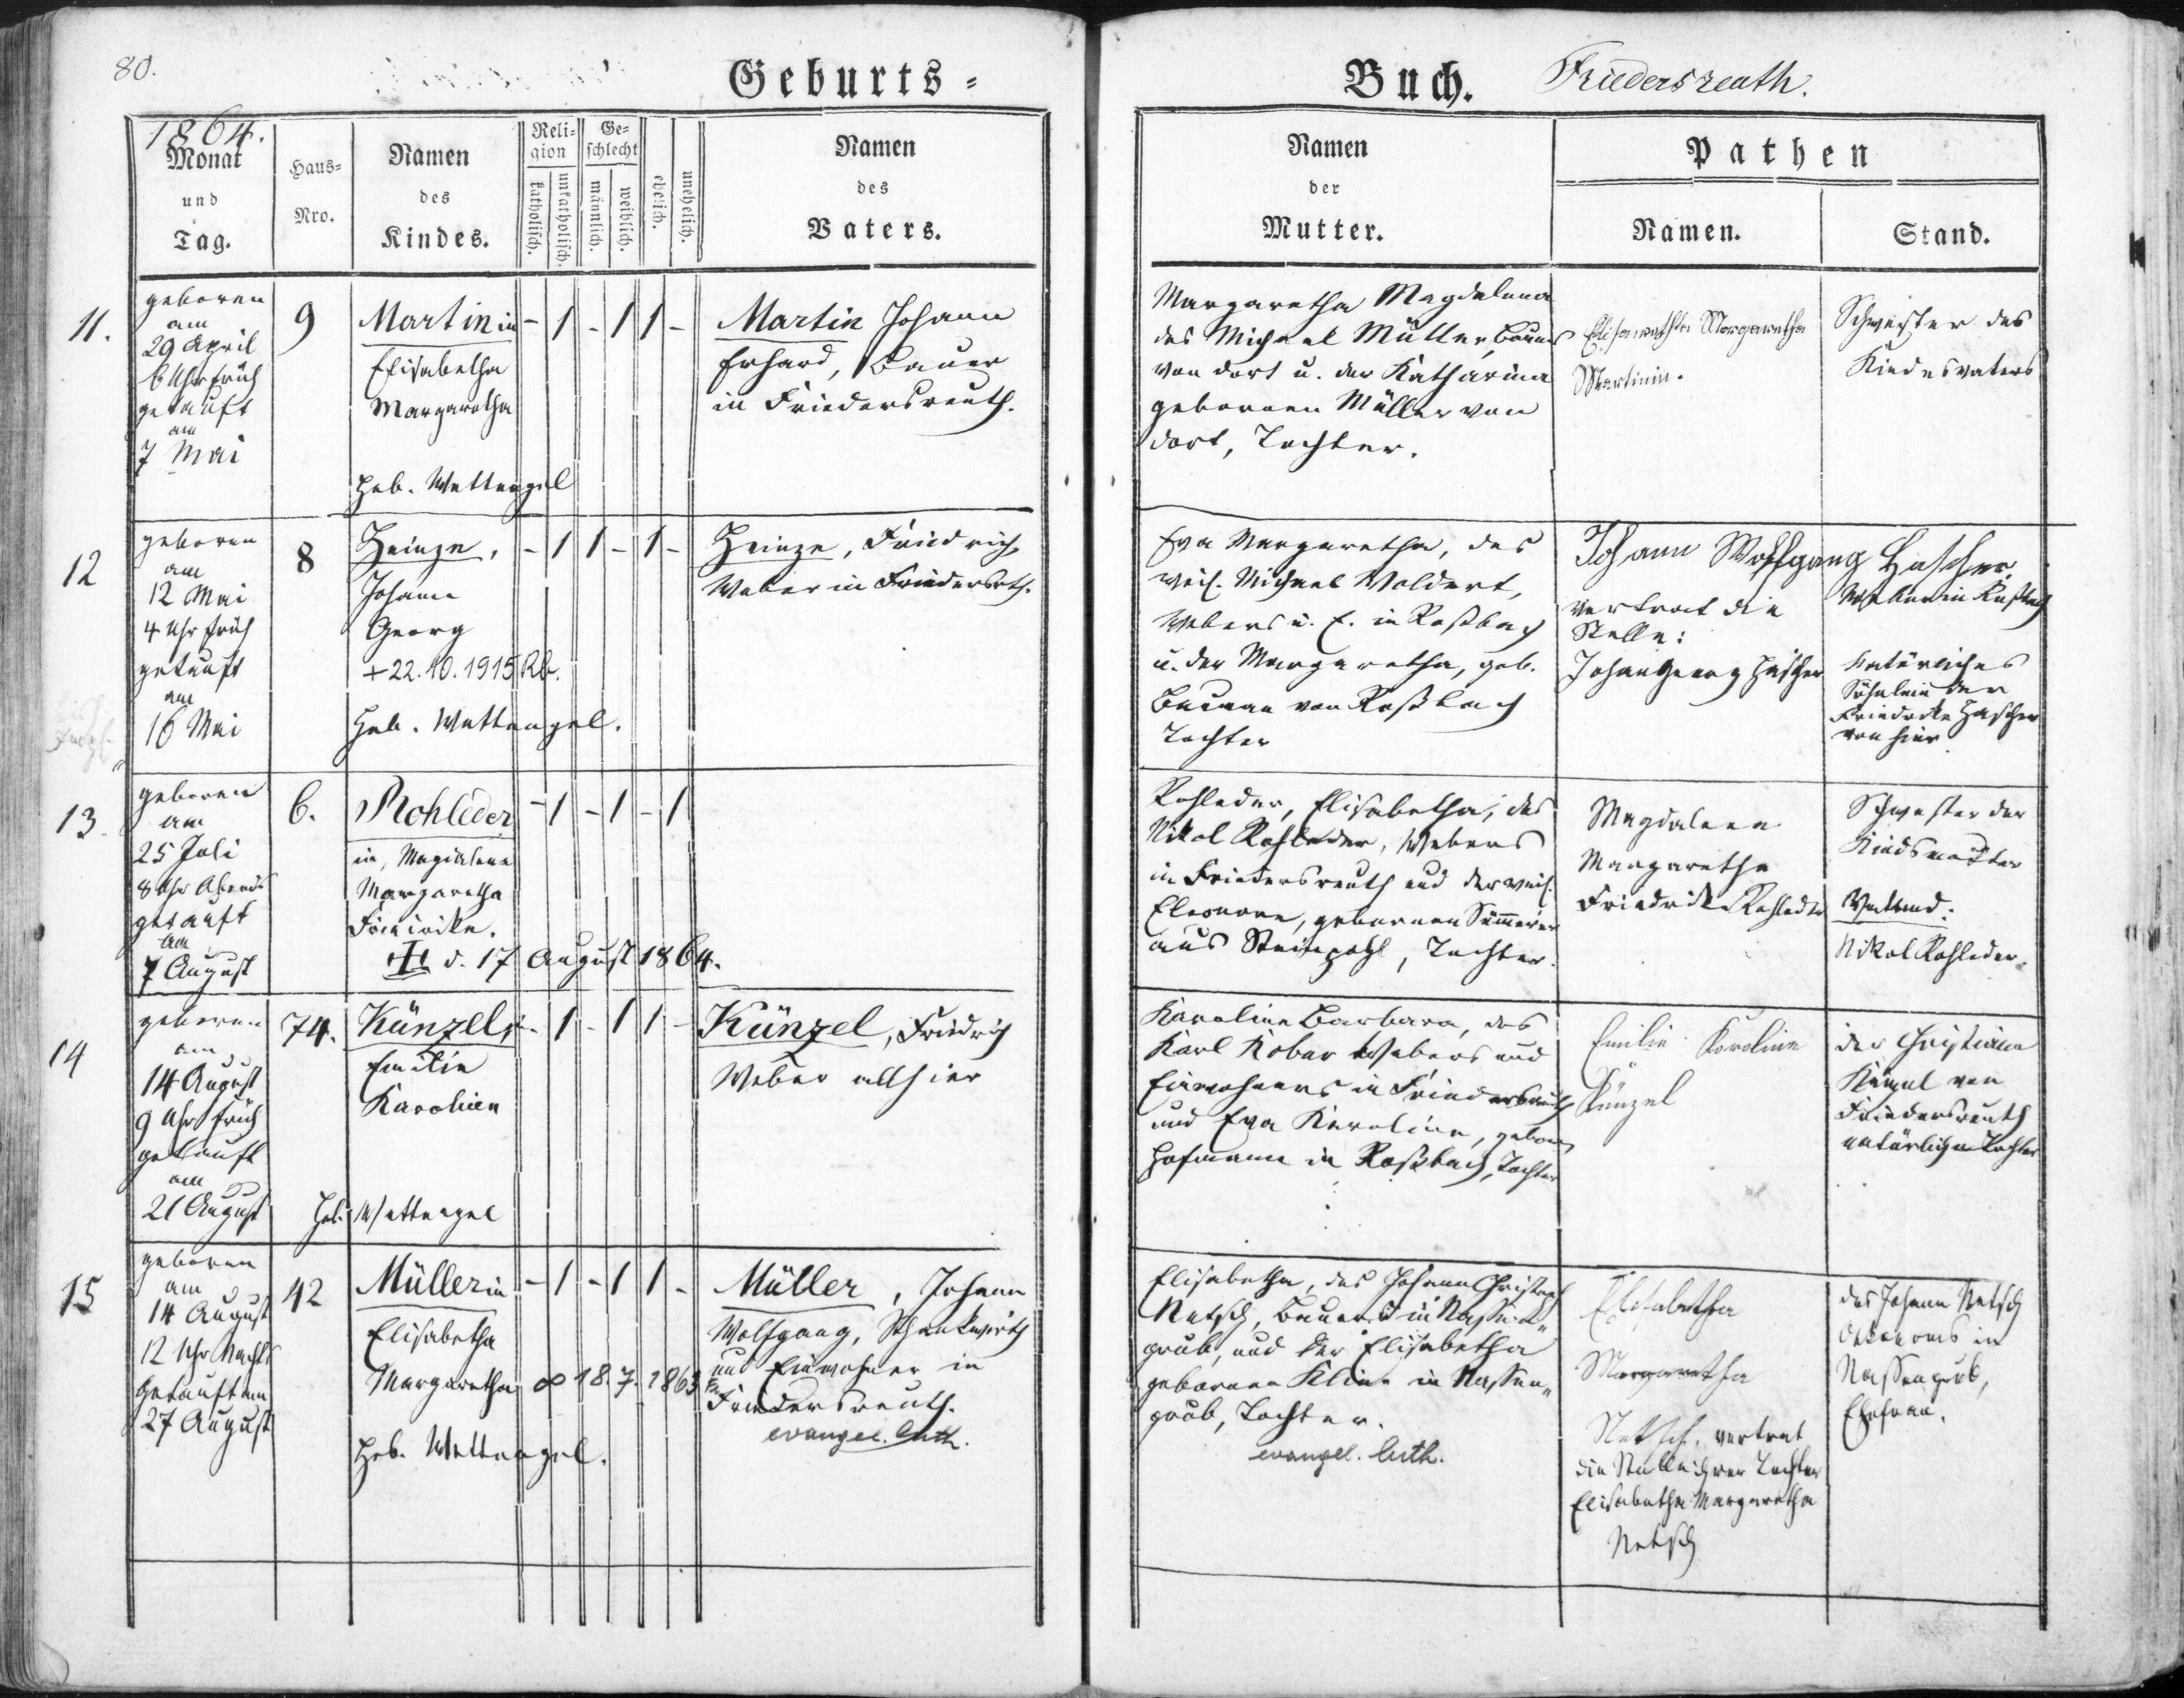 80.
Geburts-
Buch. Friedersreuth.
1864.
Monat
und
Tag.
Haus-
Nro.
Namen
des
Kindes.
Reli-
gion
katholisch.
unkatholisch.
Ge-
schlecht
männlich.
weiblich.
ehelich.
unehelich.
Namen
des
Vaters.
Namen
der
Mutter.
Pathen
Namen.
Stand.
11.
geboren
am
29 April
6 Uhr früh
getauft
am
7 Mai
9
Martin in
Elisabetha
Margaretha
Heb. Wettengel
- 1 - 1 1 -
Martin Johann
Erhard, Bauer
in Friedersreuth.
Margaretha Magdalena
des Michael Müller, Bauers
von dort u. der Katharina
gebornen Müller von
dort, Tochter.
Elisawetha Margaretha
Martinin.
Schwester des
Kindesvaters
12
geboren
am
12 Mai
4 Uhr früh
getauft
am
16 Mai
8
Heinze,
Johann
Georg
+ 22.10.1915 Rb.
Heb. Wettengel.
- 1 1 - 1 -
Heinze, Friedrich
Weber in Friedersrth.
Eva Margaretha, des
weil. Michael Woldert,
Webers u. E. in Roßbach
u. der Margaretha, geb.
Bauman von Roßbach
Tochter
Johann Wolfgang Hascher
vertrat die
Stelle:
Johan Georg Hascher
Weber in Roßbach
natürliches
Söhnlein der
Friedrike Hascher
von hier
13.
geboren
am
25 Juli
8 Uhr Abends
getauft
am
7 August
6.
Rohleder
in, Magdalena
Margaretha
Friedrike.
† d. 17 August 1864.
- 1 - 1 - 1
Rohleder, Elisabetha, des
Nikol Rohleder, Webers
in Friedersreuth und der weil.
Eleonore, gebornen Sümmerer
aus Steinpöhl, Tochter.
Magdalena
Margaretha
Friedrike Rohleder
Schwester der
Kindsmutter
Nikol Rohleder.
14
geboren
am
14 August
9 Uhr früh
getauft
am
21 August
74.
Künzel,
Emilie
Karoline
Heb. Wettengel
- 1 - 1 1 -
Künzel, Friedrich
Weber allhier
Karoline Barbara, des
Karl Kober Webers und
Einwohners in Friedersreuth
und Eva Karoline, geborn
Hofmann in Roßbach, Tochter
Emilie Karoline
Künzel
der Christiana
Künzel von
Friedersreuth
natürliche Tochter
15
geboren
am
14 August
12 Uhr Nachts
Getauft am
27 August
42
Müller in
Elisabetha
Margaretha ∞ 18.7.1863
Heb. Wettengel.
- 1 - 1 1 -
Müller, Johann
Wolfgang, Schankwirth
und Einwohner in
Friedersreuth.
evangel. luth.
Elisabetha, des Johann Christoph
Netsch, Bauers in Nassen-
grub, und der Elisabetha
gebornen Klier in Nassen-
grub, Tochter.
evangel. luth.
Elisabetha
Margaretha
Netsch, vertrat
die Stelle ihrer Tochter
Elisabetha Margaretha
Netsch
des Johann Netsch
Oekonoms in
Nassengrub,
Ehefrau.